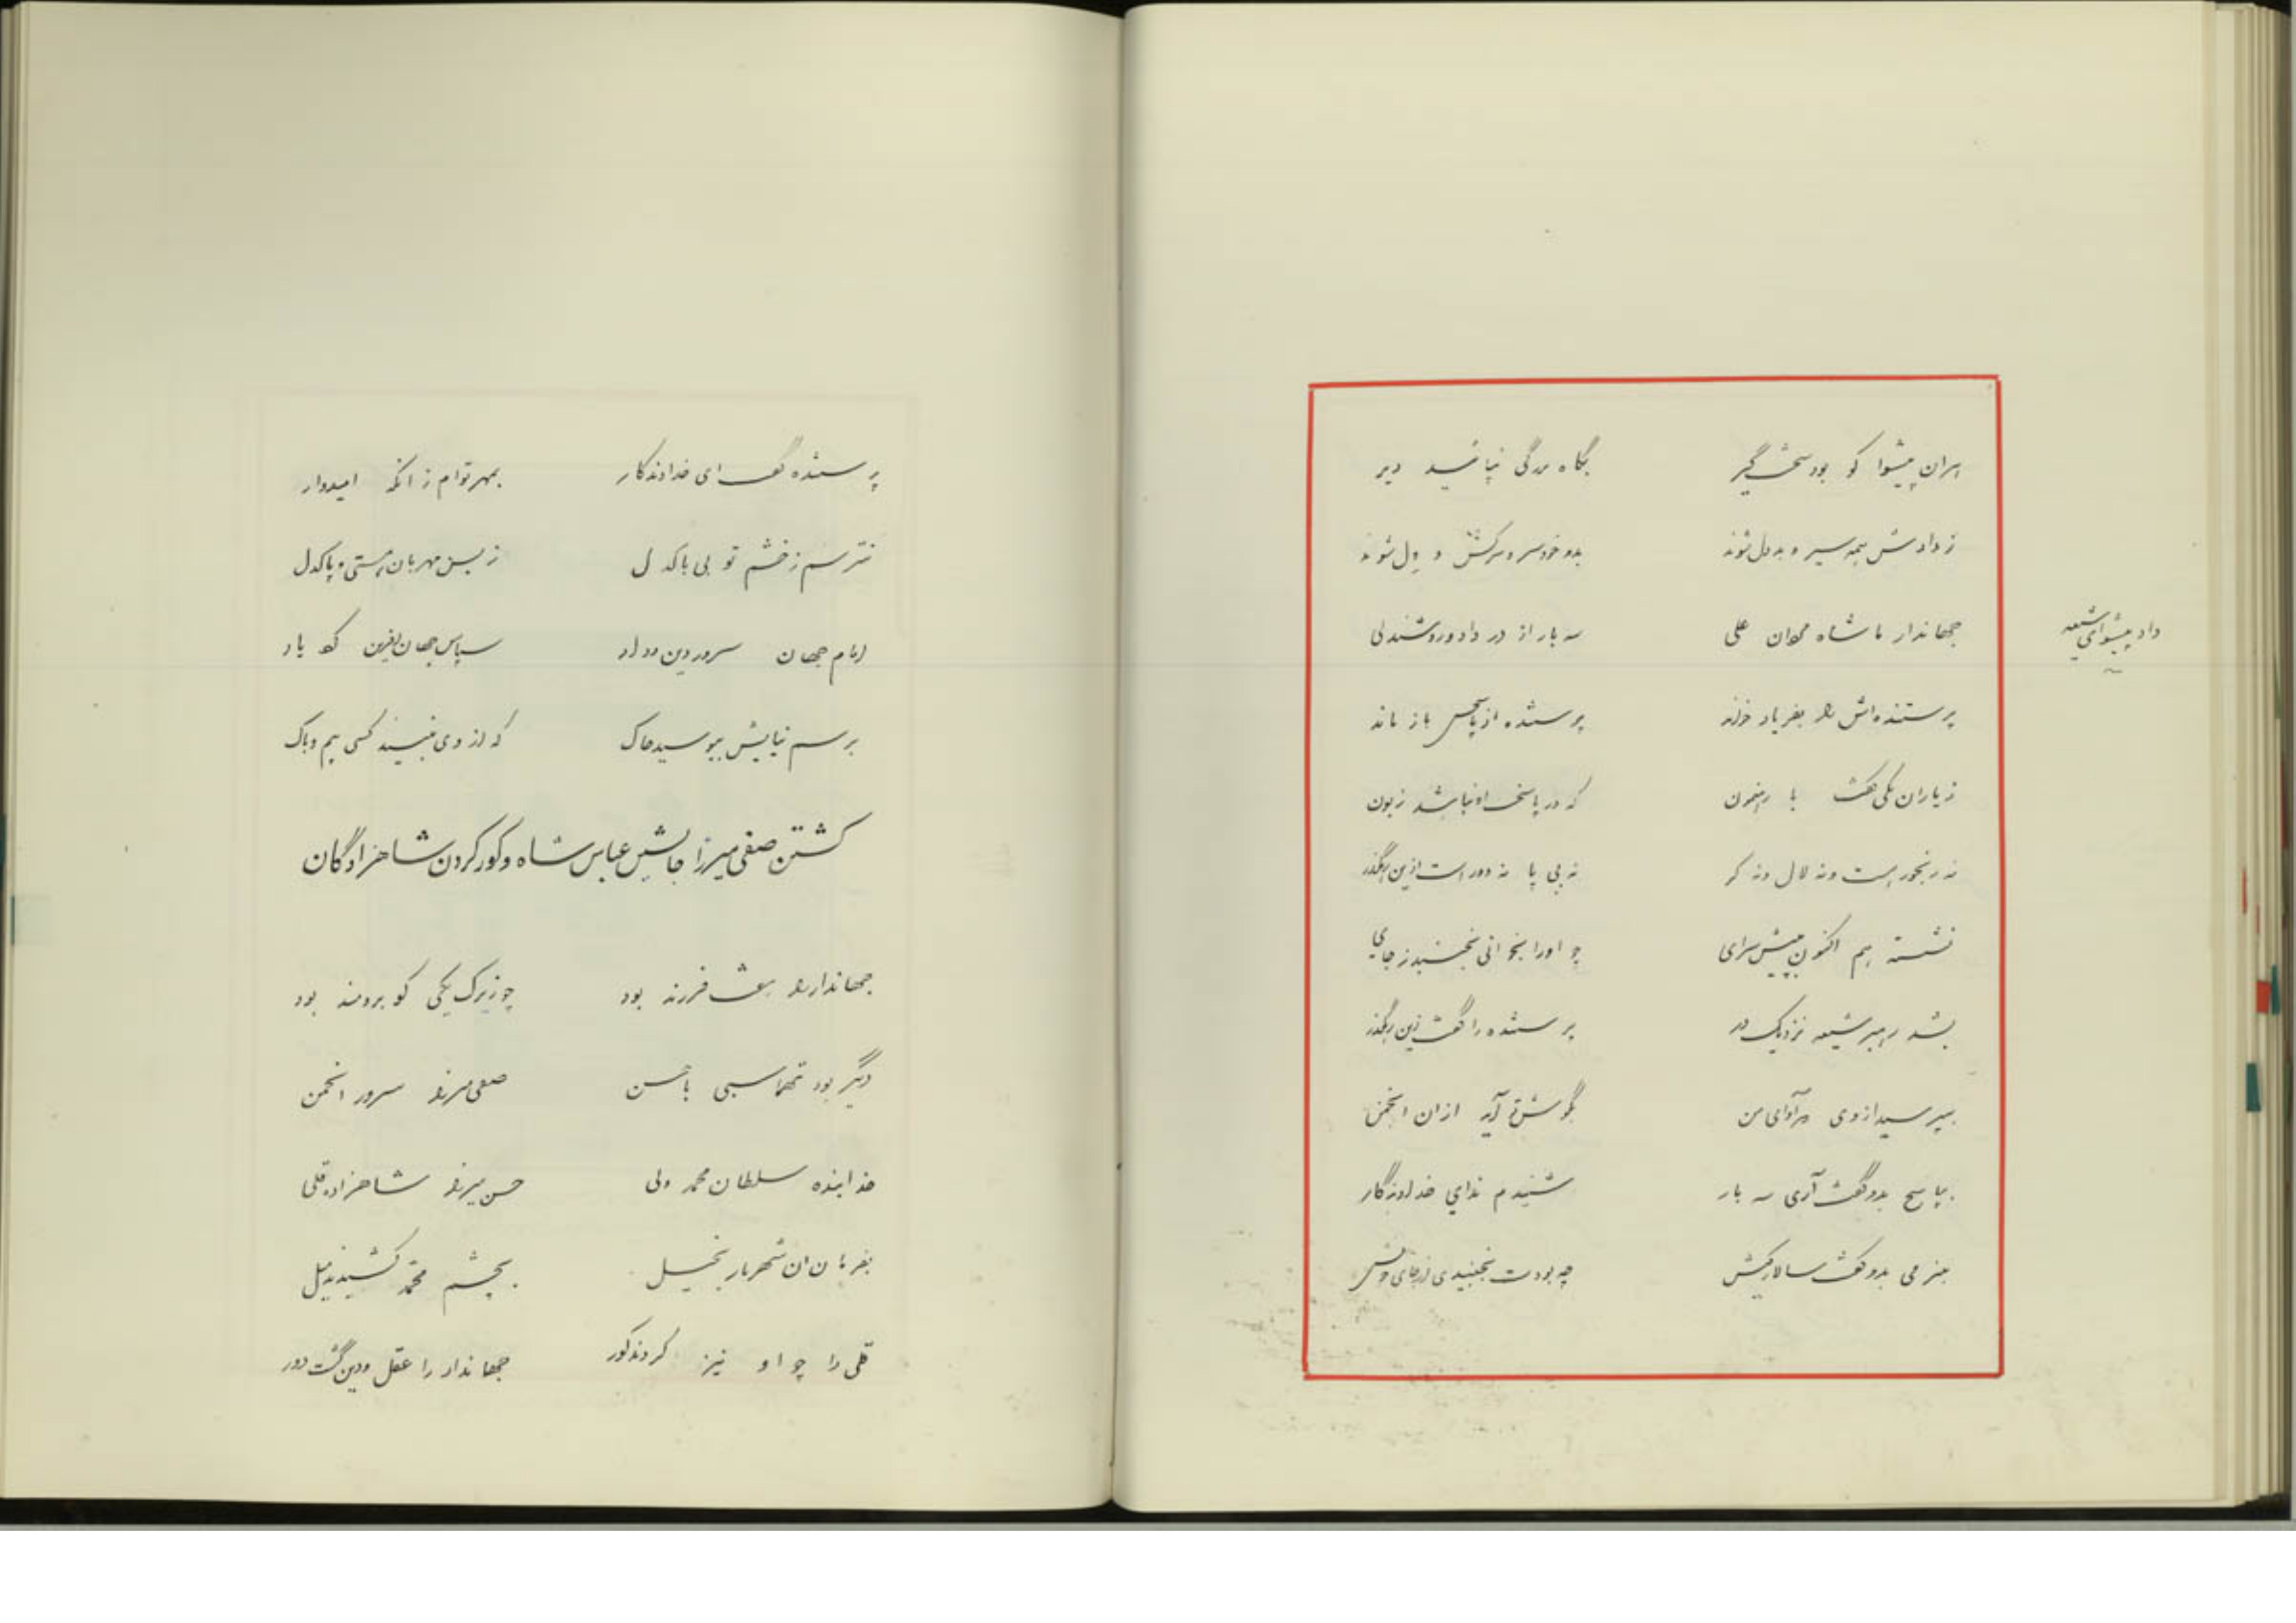 هران پیشوا کو بود سخت‌گیر بگاه بزرگی نپائید دیر
ز دادش همه سیر و بددل شوند بدو خودسر و سرکش و ول شوند
داد پیشوای شیعه
جهاندار ما شاه مردان علی سه بار از در داد و روشندلی
پرستنده‌اش را بفریاد خواند پرستنده از پاسخش باز ماند
ز یاران یکی گفت با رهنمون که در پاسخ او نباشد زبون
نه رنجور است و نه لال و نه کر نه بی پا نه دور است ازین رهگذر
نشسته هم اکنون به پیش سرای چو او را بخوانی نجنبد ز جای
بشد رهبر شیعه نزدیک در پرستنده را گفت زین رهگذر
بپرسید از وی هرآوای من بگوش تو آید ازان انجمن
بپاسخ بدو گفت آری سه بار شنیدم ندای خداوندگار
بنرمی بدو گفت سالار کیش چه بودت نجنبیدی از جای خویش
پرستنده گفت ای خداوندکار بمهر توام زانکه امیدوار
نترسم ز خشم تو بی باک دل ز بس مهربان هستی و پاکدل
امام جهان سرور دین و داد سپاس جهان آفرین کرد یاد
برسم نیایش ببوسید خاک که از وی نبیند کسی بیم و باک
کشتن صفی میرزا جانشین عباس شاه و کور کردن شاهزادگان
جهاندار را هفت فرزند بود چو زیرک یکی کو برومند بود
دیگر بود تهماسبی با حسن صفی میرزا سرور انجمن
خدابنده سلطان محمد ولی حسن میرزا شاهزاده قلی
بفرمان ان شهریار بخیل بچشم محمد کشیدند میل
قلی را چو او نیز کردند کور جهاندار را عقل و دین گشت دور